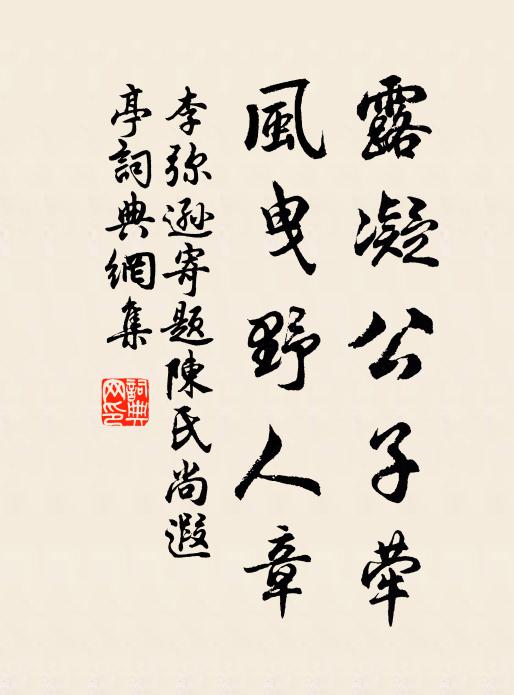 露凝公子荦
風曳野人章
李弥遜寄題陳氏尚遐
亭詞典網集
詞典
网印